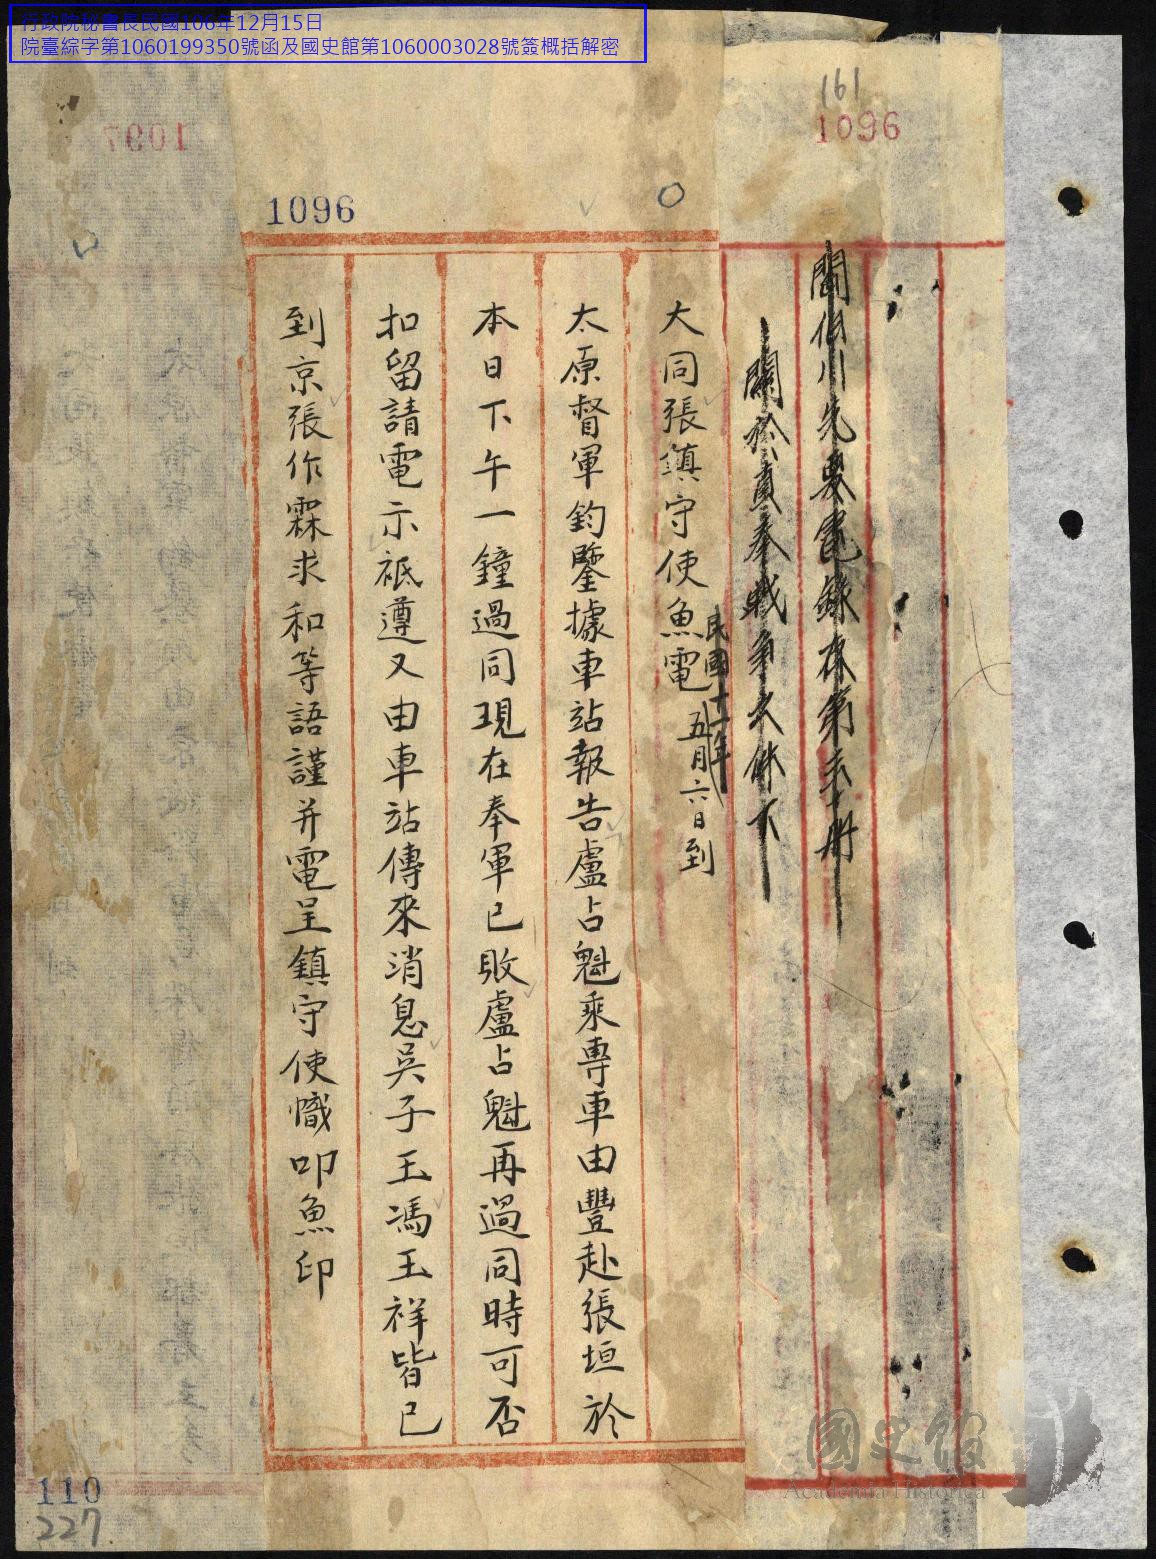 行政院秘書長民國106年12月15日
院臺綜字第1060199350號函及國史館第1060003028號簽概括解密
161
1096
1097
1096
閻伯川先生電錄存第三十册
關於直奉戰爭文件下
民國十一年
大同張鎮守使魚電 五月六日到
太原督軍鈞鑒據車站報告盧占魁乘專車由豐赴張垣於
本日下午一鐘過同現在奉軍已敗盧占魁再過同時可否
扣留請電示祗遵又由車站傳來消息吳子玉馮玉祥皆已
到京張作霖求和等語謹并電呈鎮守使幟叩魚印
110
227
國史館
Academia Historica